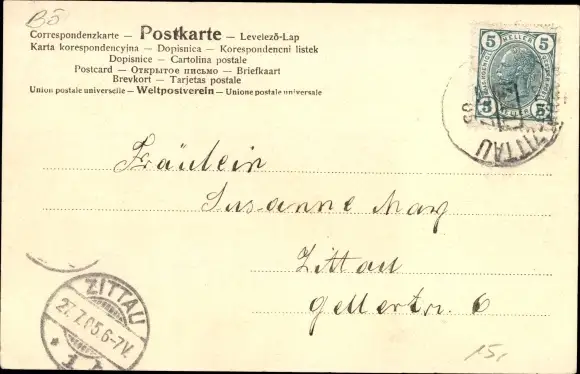 B5
Correspondenzkarte – Postkarte – Levelező-Lap
Karta korespondencyjna – Dopisnica – Korespondencni listek
Dopisnice – Cartolina postale
Postcard – Открытое письмо – Briefkaart
Brevkort – Tarjetas postale
Union postale universelle – Weltpostverein – Unione postale universale
5 HELLER 5
5 HELLER 5
ZITTAU
Fräulein
Susanne Marg
Zittau
Gellertstr. 6
ZITTAU
27.7.05.6-7V.
* 1
15,